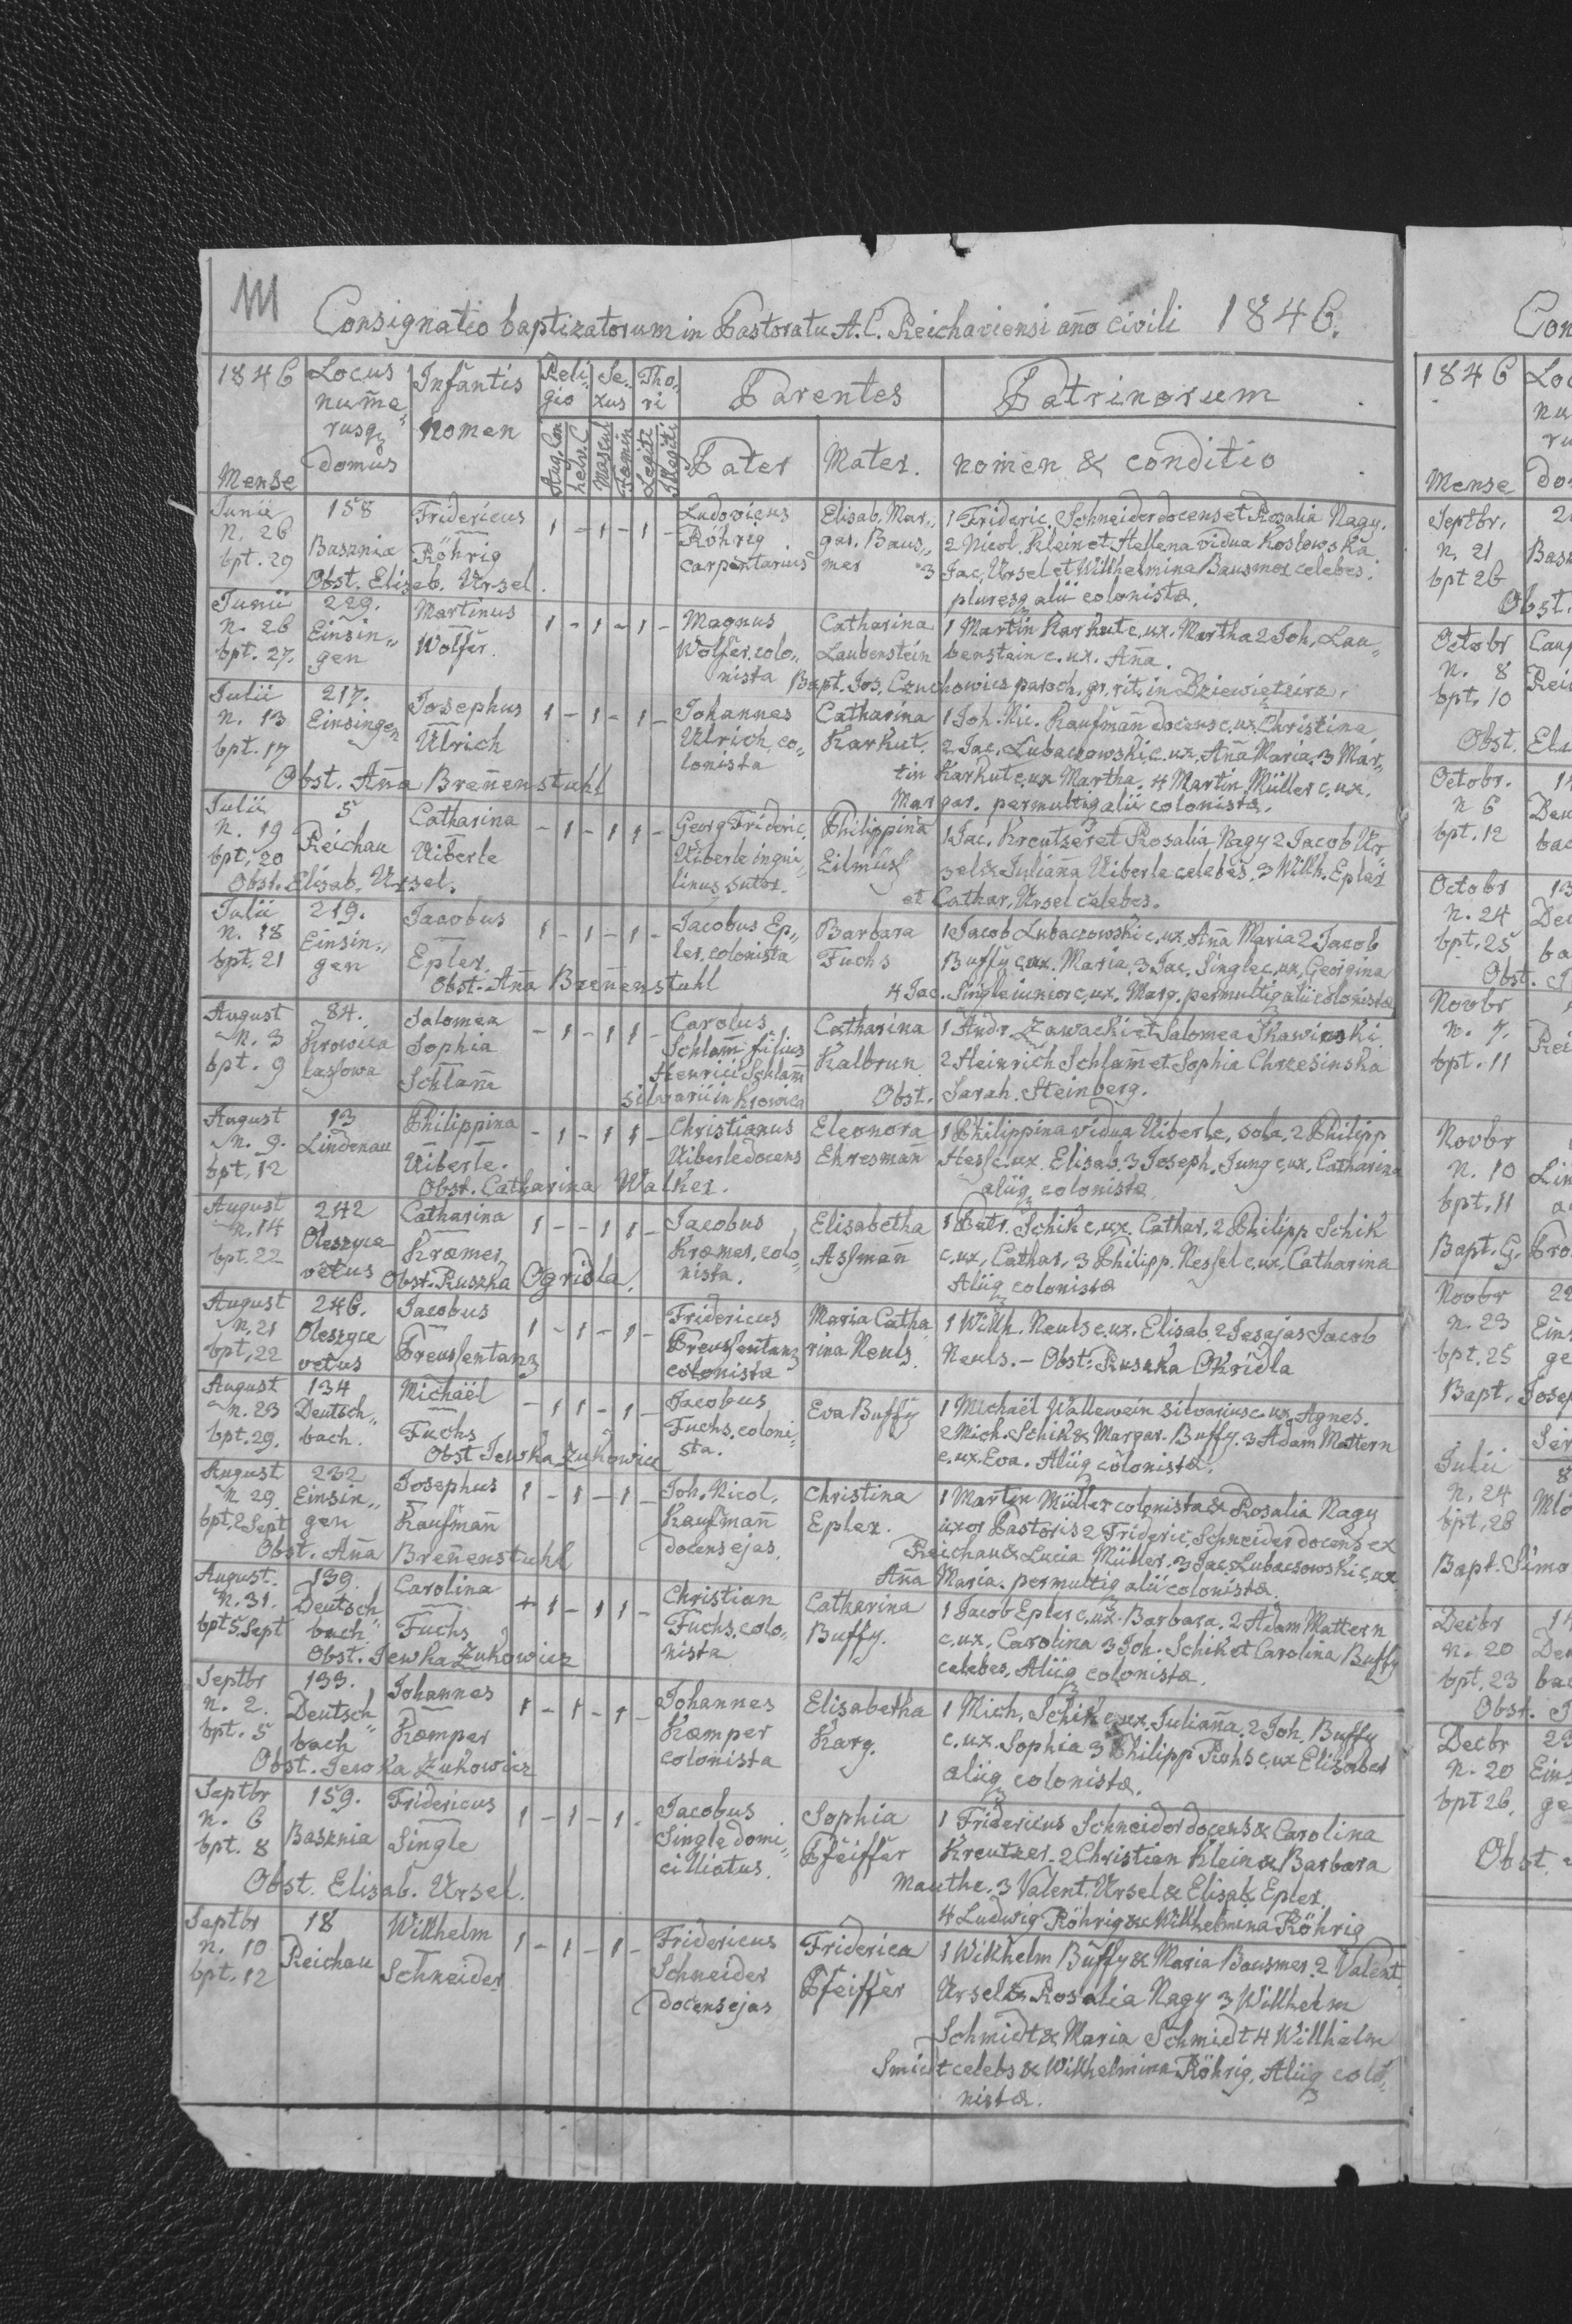 III
Consignatio baptizatorum in Pastoratu A. C. Reichaviensi año civili 1846.
1846 Locus nume„ rusq domus Infantis nomen Reli„ gio Se„ xus Tho„ ri Parentes Patrinorum
Mense Aug. Con helv. C Mascul Fœmin Legiti Illegiti Pater Mater. nomen & conditio
Junii 158 Fridericus 1 - 1 - 1 - Ludovicus Elisab. Mar„ 1 Frideric. Schneider docens et Rosalia Nagy.
n. 26 Basznia Röhrig Röhrig gar. Baus„ 2 Nicol. Klein et Hellena vidua Koslowska
bpt. 29 carpentarius mer 3 Jac. Ursel et Willhelmina Bausmer celebes.
Obst. Elisab. Ursel. pluresq alii colonistæ.
Junii 229. Martinus 1 - 1 - 1 - Magnus Catharina 1 Martin Karkut c. ux. Martha 2 Joh. Lau„
n. 26 Einsin„ Wolfer. Wolfer. colo„ Laubenstein benstein c. ux. Aña.
bpt. 27. gen nista Bapt. Jos. Czuchowicz paroch. gr. rit. in
Julii 217. Josephus 1 - 1 - 1 - Johannes Catharina 1 Joh. Nic. Kaufmañ docens c. ux. Christina
n. 13 Einsingen Ulrich Ulrich, co„ Karkut. 2 Jac. Lubaczowski c. ux. Aña Maria. 3 Mar„
bpt. 17 lonista tin Karkut c. ux Martha. 4 Martin Müller c. ux.
Obst. Aña Breñenstuhl Margar. permultiq alii colonistæ.
Julii 5 Catharina - 1 - 1 1 - Georg Frideric. Philippina 1 Jac. Kreutzer et Rosalia Nagy 2 Jacob Ur„
n. 19 Reichau Uiberle Uiberle inqui„ Eilmüs sel & Juliaña Uiberle celebes. 3 Willh. Epler
bpt. 20 linus sutor. et Cathar. Ursel celebes.
Obst. Elisab. Ursel.
Julii 219. Jacobus 1 - 1 - 1 - Jacobus Ep„ Barbara 1 Jacob Lubaczowski c. ux. Aña Maria 2 Jacob
n. 18 Einsin„ Epler. ler. colonista Fuchs Buffy c. ux. Maria. 3 Jac. Single c. ux. Georgina
bpt. 21 gen Obst. Aña Breñenstuhl 4 Jac. Single iunior c. ux. Marg. permultiq alii colonistæ
August 84. Salomea - 1 - 1 1 - Carolus Catharina 1 Andr. Zawacki et Salomea Skawinski.
n. 3 Krowica Sophia Schlam̃ filius Kalbrun. 2 Heinrich Schlam̃ et Sophia Chrzesinska
bpt. 9 lassowa Schlam̃ Henrici Schlam̃
silvarii in Krowica Obst. Sarah. Steinberg.
August 13 Philippina - 1 - 1 1 - Christianus Eleonora 1 Philippina vidua Uiberle, sola, 2 Philipp
n. 9. Lindenau Uiberle. Uiberle docens Ehresman Hess c. ux. Elisab. 3 Joseph. Jung c. ux. Catharina
bpt. 12 Obst. Catharina Walker. aliiq colonistæ
August 242 Catharina 1 - - 1 1 - Jacobus Elisabetha 1 Petr. Schik c. ux. Cathar. 2 Philipp Schik
n. 14 Oleszyce Kræmer, Kræmer, colo„ Assmañ c. ux. Cathar. 3 Philipp. Nessel c. ux. Catharina
bpt. 22 vetus Obst. Ruszka Ogridla. nista. Aliiq colonistæ
August 246. Jacobus 1 - 1 - 1 - Fridericus Maria Catha 1 Willh. Neuls c. ux. Elisab. 2 Jesajas Jacob
n. 21 Oleszyce Preussentanz Preussentanz rina Neuls. Neuls. - Obst. Ruszka Okridla
bpt. 22 vetus colonista
August 134 Michaël - 1 1 - 1 - Jacobus Eva Buffy 1 Michaël Wallewein silvarius c. ux. Agnes.
n. 23 Deutsch„ Fuchs Fuchs. coloni„ 2 Mich. Schik & Margar. Buffy. 3 Adam Mattern
bpt. 29. bach. Obst Jewka Zukowicz sta. c. ux. Eva. Aliiq colonistæ.
August 232 Josephus 1 - 1 - 1 - Joh. Nicol. Christina 1 Martin Müller colonista & Rosalia Nagy
n. 29. Einsin„ Kaufmañ Kaufmañ Epler. uxor Pastoris 2 Frideric. Schneider docens ex
bpt. 2 Sept gen docens ejas. Reichau & Lucia Müller. 3 Jac. Lubaczowski c. ux
Obst. Aña Breñenstuhl Aña Maria. permultiq alii colonistæ.
August. 139. Carolina - 1 - 1 1 - Christian Catharina 1 Jacob Epler c. ux. Barbara. 2 Adam Mattern
n. 31. Deutsch„ Fuchs Fuchs. colo„ Buffy. c. ux. Carolina 3 Joh. Schik et Carolina Buffy
bpt 5. Sept bach. nista celebes. Aliiq colonistæ.
Obst. Jewka Zukowicz
Septbr 133. Johannes 1 - 1 - 1 - Johannes Elisabetha 1 Mich. Schik c. ux. Juliaña. 2 Joh. Buffy
n. 2. Deutsch„ Kæmper Kæmper Karg. c. ux. Sophia 3 Philipp Rohs c. ux Elisabet
bpt. 5 bach colonista aliiq colonistæ.
Obst. Jewka Zukowicz
Septbr 159. Fridericus 1 - 1 - 1 - Jacobus Sophia 1 Fridericus Schneider docens & Carolina
n. 6 Basznia Single Single domi„ Pfeiffer Kreutzer. 2 Christian Klein & Barbara
bpt. 8 cilliatus. Mauthe. 3 Valent. Ursel & Elisab. Epler.
Obst. Elisab. Ursel. 4 Ludwig Röhrig & Willhelmina Röhrig
Septbr 18 Willhelm 1 - 1 - 1 - Fridericus Friderica 1 Willhelm Buffy & Maria Bausmer. 2 Valent.
n. 10 Reichau Schneider Schneider Pfeiffer Ursel & Rosalia Nagy 3 Willhelm
bpt. 12 docens ejas Schmidt & Maria Schmidt 4 Willhalm
Smidt celebs & Willhelmina Röhrig. Aliiq colo„
nistæ.
Con
1846 Loc
nu
ru
Mense do
Septbr. 2
n. 21 Basz
bpt 26
Obst.
Octobr Cau
n. 8 Rei
bpt. 10
Obst. Eli
Octobr. 14
n 6 Deu
bpt. 12 bac
Octobr 13
n. 24 Deu
bpt. 25 ba
Obst. J
Novbr
n. 7. Rei
bpt. 11
Novbr
n. 10 Lin
bpt. 11 a
Bapt. G. Pro
Noobr 22
n. 23 Eins
bpt. 25 ge
Bapt. Josep
Ser
Julii 8
n. 24 Mlo
bpt. 28
Bapt. Simo
Decbr 14
n. 20 Deu
bpt. 23 bac
Obst. J
Decbr 23
n. 20 Eins
bpt 26. ge
Obst.